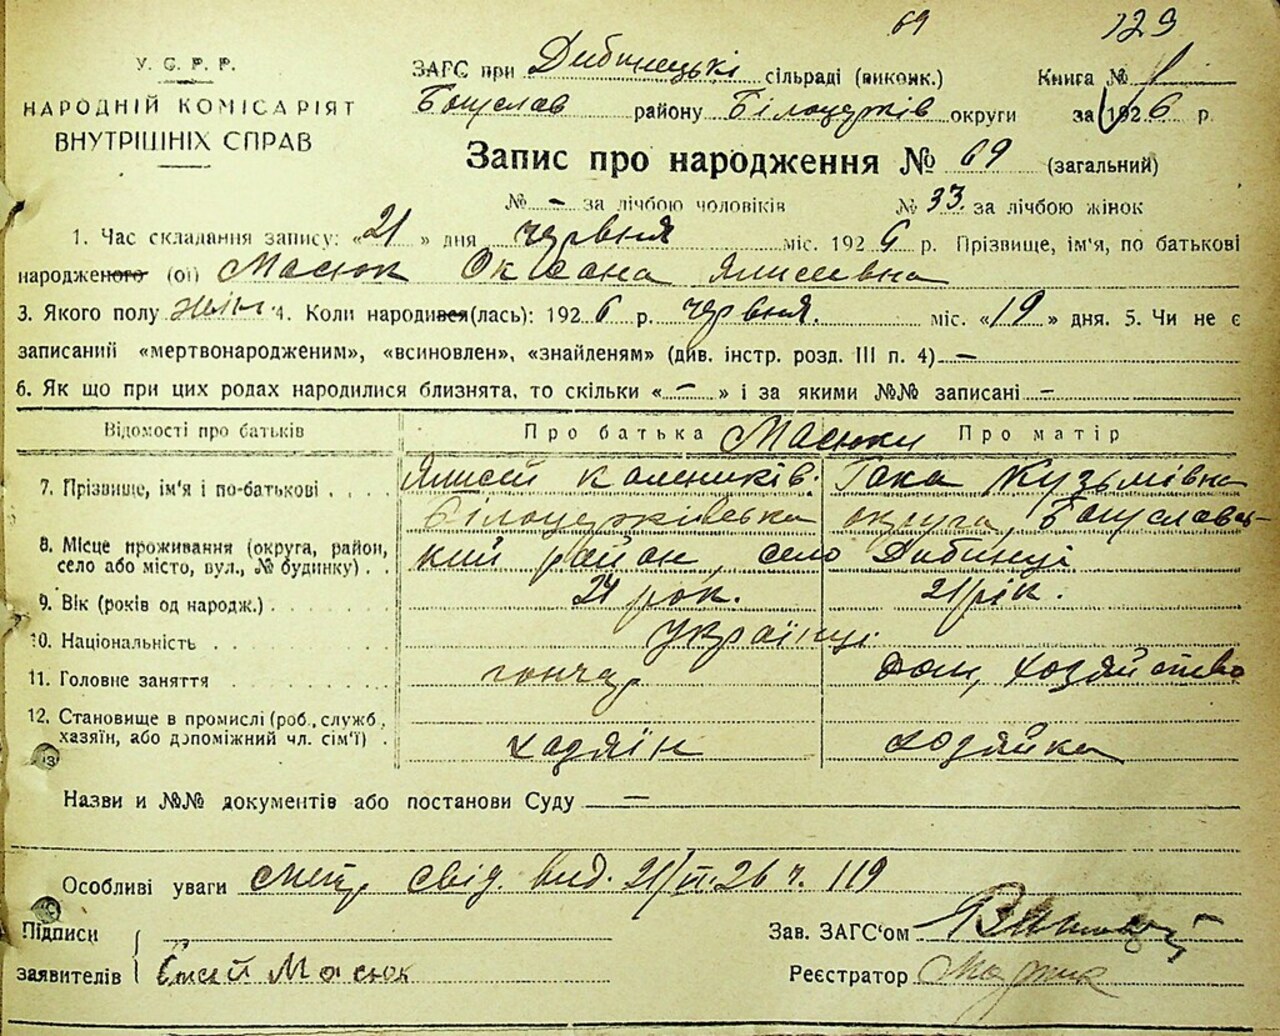 69 129
У. С. Р. Р.
НАРОДНІЙ КОМІСАРІЯТ
ВНУТРІШНІХ СПРАВ
ЗАГС при Дибинецькі сільраді (виконк.) Книга № 1
Богуслав району Білоцерків округи за 1926 р.
Запис про народження № 69 (загальний)
№ – за лічбою чоловіків № 33. за лічбою жінок
1. Час складання запису: «21» дня червня міс. 1926 р. Прізвище, ім'я, по батькові
народженого (ої) Масюк Оксана Ялисеівна
3. Якого полу жін. 4. Коли народився(лась): 1926 р. червня. міс. «19» дня. 5. Чи не є
записаний «мертвонародженим», «всиновлен», «знайденям» (див. інстр. розд. III п. 4) –
6. Як що при цих родах народилися близнята, то скільки «–» і за якими №№ записані –
Відомості про батьків Про батька Масюки Про матір
7. Прізвище, ім'я і по-батькові Ялисей Калеників. Гака Кузьмівна
Білоцерківська округа, Богуславсь-
8. Місце проживання (округа, район, кий район, село Дибинці
село або місто, вул., № будинку)
9. Вік (років од народж.) 24 рок. 21 рік.
10. Національність Українці
11. Головне заняття гончар дом, хозяйство
12. Становище в промислі (роб., служб.,
хазяїн, або допоміжний чл. сім'ї) хадяїн ходяйка
Назви и №№ документів або постанови Суду –
Особливі уваги свід. вид. 21/VI.26 ч. 119
Підписи Зав. ЗАГС'ом
заявителів Єлисей Масюк Реєстратор